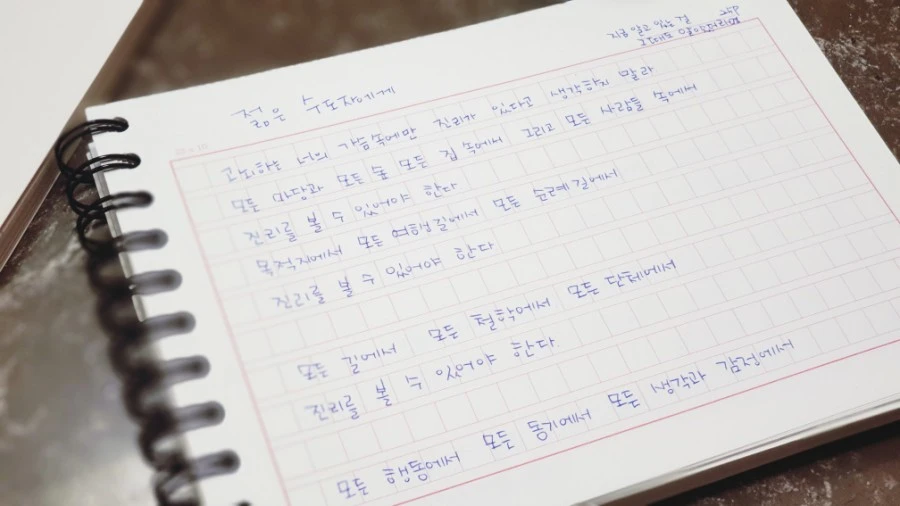 25P
지금 알고 있는 걸
그때도 알았더라면
젊은 수도자에게
고뇌하는 너의 가슴속에만 진리가 있다고 생각하지 말라
모든 마당과 모든 숲 모든 집 속에서 그리고 모든 사람들 속에서
진리를 볼 수 있어야 한다
목적지에서 모든 여행길에서 모든 순례길에서
진리를 볼 수 있어야 한다
모든 길에서 모든 철학에서 모든 단체에서
진리를 볼 수 있어야 한다.
모든 행동에서 모든 동기에서 모든 생각과 감정에서